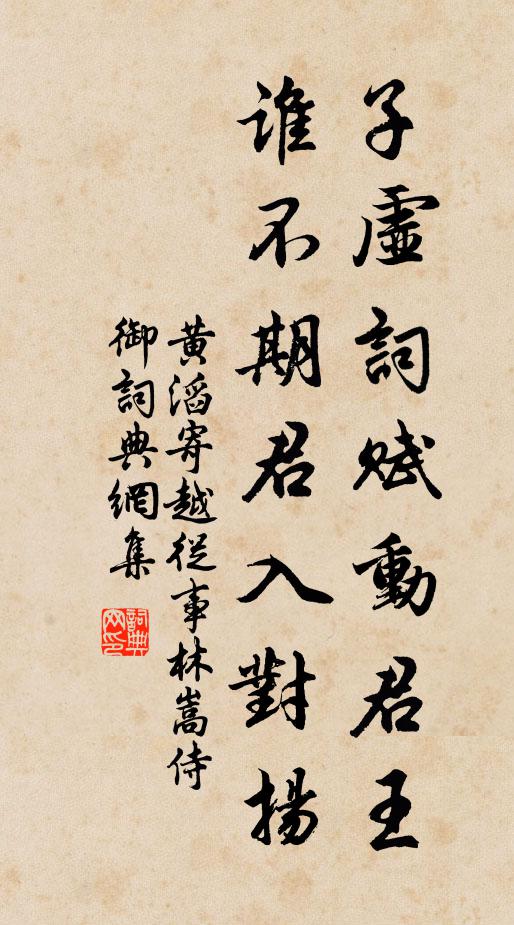 子虛詞賦動君王
誰不期君入對揚
黃滔寄越從事林嵩侍
御詞典網集
詞典
网印